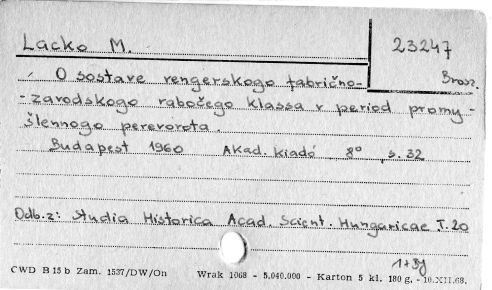 Lacko M.
23247
O sostave rengerskogo fabrično-
Brosz.
-zavodskogo rabočego klassa v period promy-
šlennogo perevorota.
Budapest 1960 Akad. Kiadó 8° s. 32
Odb. z: Studia Historica Acad. Scient. Hungaricae T. 20
CWD B 15 b Zam. 1537/DW/On Wrak 1068 - 5.040.000 - Karton 5 kl. 180 g. - 10.XII.68.